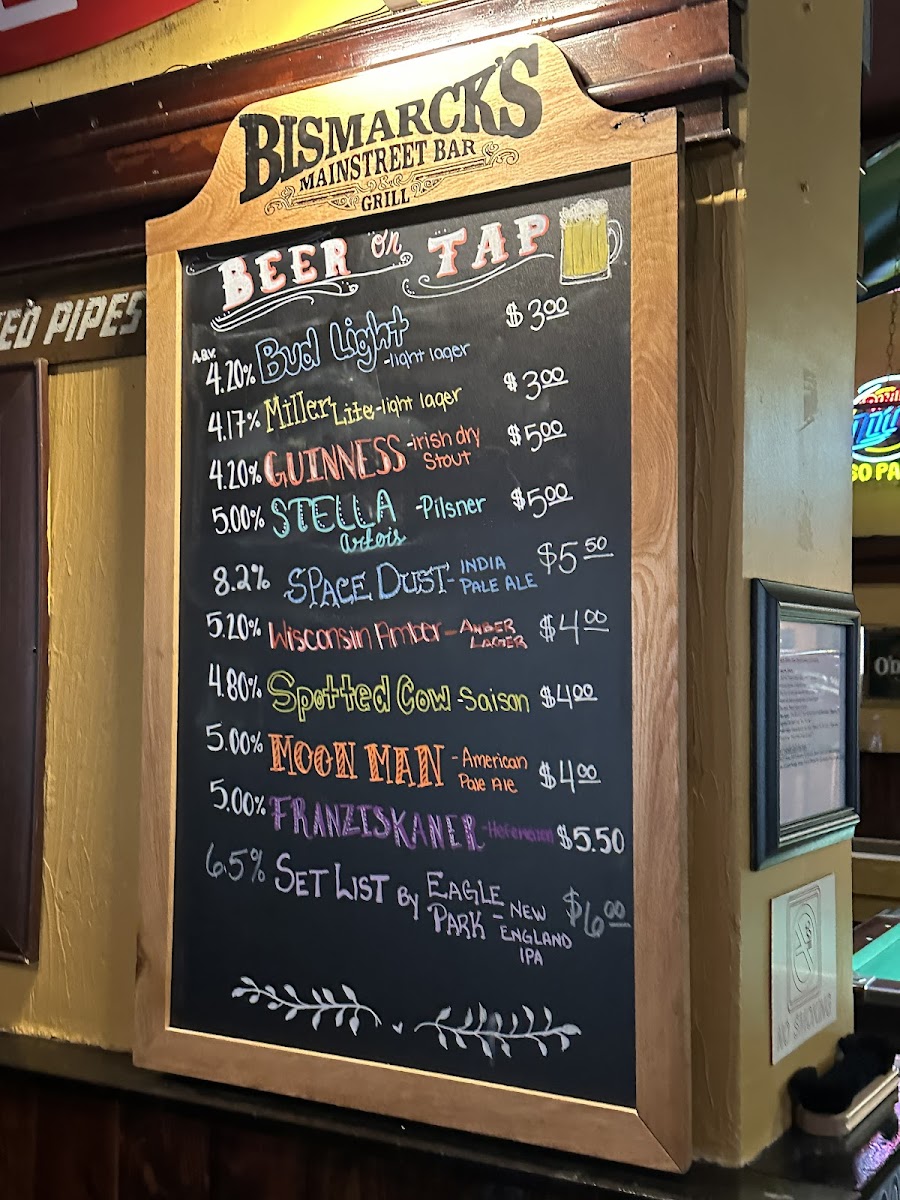 BISMARCK'S
MAINSTREET BAR
GRILL
BEER on TAP
A.B.V.
4.20% Bud Light -light lager $3.00
4.17% Miller Lite-light lager $3.00
4.20% GUINNESS -irish dry Stout $5.00
5.00% STELLA artois -Pilsner $5.00
8.2% SPACE DUST- INDIA PALE ALE $5.50
5.20% Wisconsin Amber - AMBER LAGER $4.00
4.80% Spotted Cow -Saison $4.00
5.00% MOON MAN - American Pale Ale $4.00
5.00% FRANZISKANER $5.50
6.5% SET LIST By EAGLE PARK - NEW ENGLAND IPA $6.00
PIPES
NO SMOKING